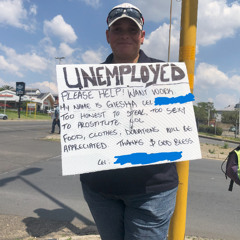 UNEMPLOYED
PLEASE HELP! WANT WORK
MY NAME IS
TOO HONEST TO STEAL, TOO SEXY
TO PROSTITUTE. LOL
FOOD, CLOTHES, DONATIONS WILL BE
APPRECIATED. THANKS & GOD BLESS